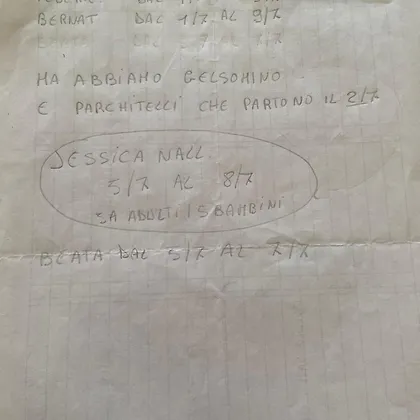 BERNAT DAL 1/7 AL 9/7
MA ABBIAMO GELSOMINO
E PARCHITELLI CHE PARTONO IL 2/7
JESSICA NALL
5/7 AL 8/7
ADULTI 5 BAMBINI
BEATA DAL 5/7 AL 7/7